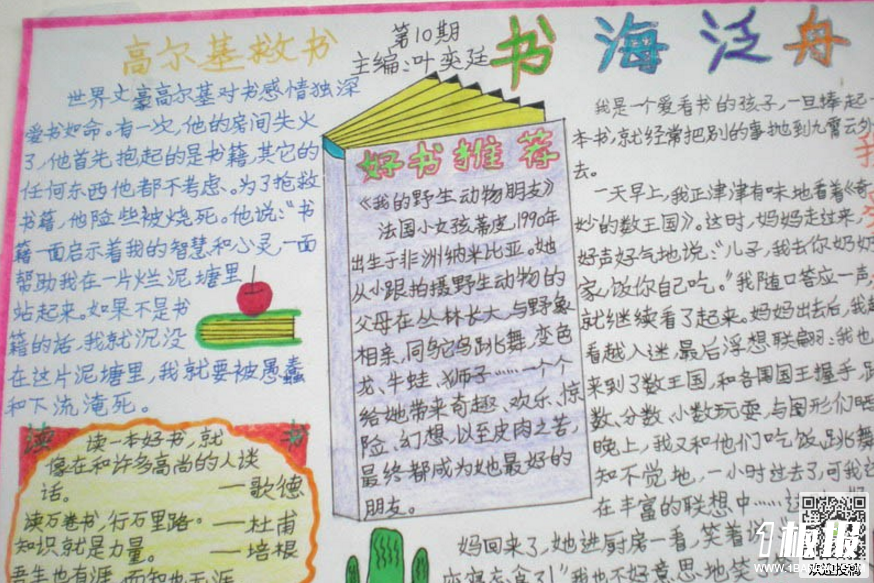 高尔基救书
世界文豪高尔基对书感情独深
爱书如命。有一次,他的房间失火
了,他首先抱起的是书籍,其它的
任何东西他都不考虑。为了抢救
书籍,他险些被烧死。他说:“书
籍一面启示着我的智慧和心灵,一面
帮助我在一片烂泥塘里
站起来。如果不是书
籍的话,我就沉没
在这片泥塘里,我就要被愚蠢
和下流淹死。
读 书
读一本好书,就
像在和许多高尚的人谈
话。 —歌德
读万卷书,行百里路。—杜甫
知识就是力量。 —培根
吾生也有涯,而知也无涯
第10期
主编:叶奕廷
书海泛舟
好书推荐
《我的野生动物朋友》
法国小女孩蒂皮,1990年
出生于非洲纳米比亚。她
从小跟拍摄野生动物的
父母在丛林长大,与野象
相亲,同鸵鸟跳舞,变色
龙、牛蛙、狮子……一个个
给她带来奇趣、欢乐、惊
险、幻想,以至皮肉之苦,
最终都成为她最好的
朋友。
我是一个爱看书的孩子,一旦捧起一
本书,就经常把别的事抛到九霄云外
去。
一天早上,我正津津有味地看着《奇
妙的数王国》。这时,妈妈走过来,
好声好气地说:“儿子,我去你奶奶
家,饭你自己吃。”我随口答应一声,
就继续看了起来。妈妈出去后,我越
看越入迷,最后浮想联翩:我也
来到了数王国,和各国国王握手,跟
数、分数、小数玩耍,与图形们
晚上,我又和他们吃饭、跳舞
知不觉地,一小时过去了,可我还
在丰富的联想中……
妈回来了,她进厨房一看,笑着说
我也不好意思地笑
我
1板报
WWW.1BANBAO.COM